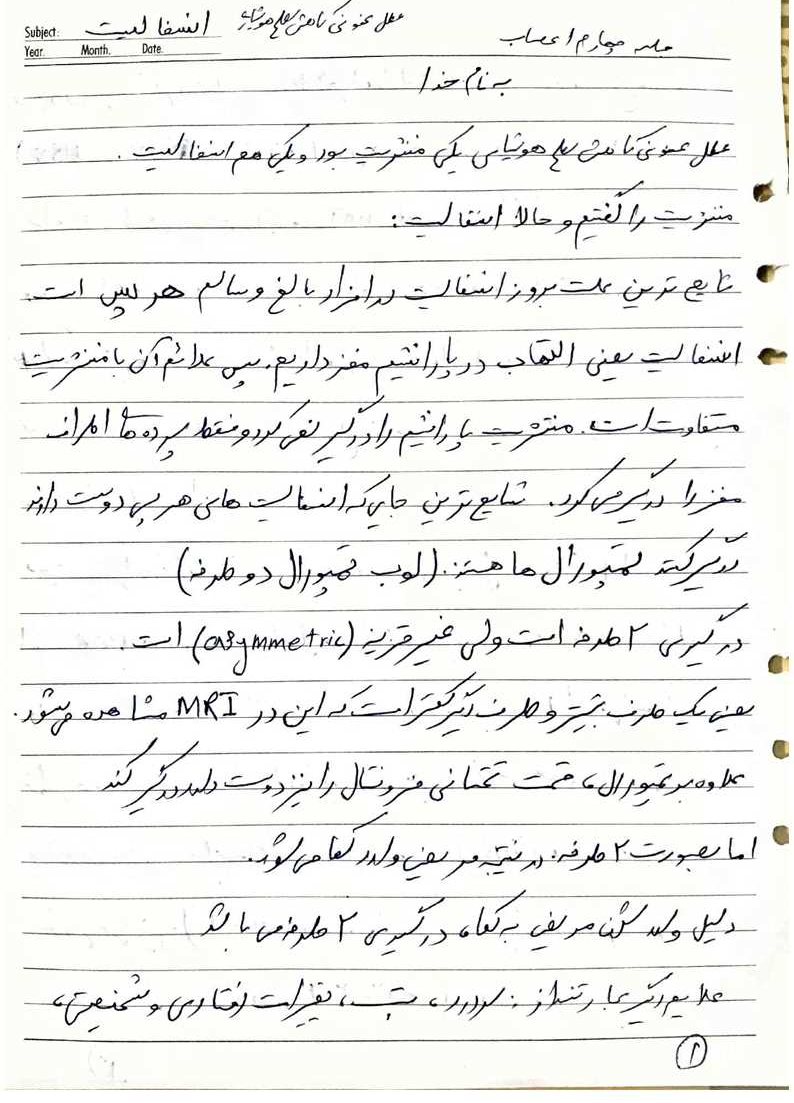 Subject: انسفالیت علل عفونی کاهش سطح هوشیاری
Year. Month. Date. جلسه چهارم اعصاب
به نام خدا
علل عفونی کاهش سطح هوشیاری یکی مننژیت بود و یکی هم انسفالیت.
مننژیت را گفتیم و حالا انسفالیت:
شایع ترین علت بروز انسفالیت در افراد بالغ و سالم هرپس است.
انسفالیت یعنی التهاب در پارانشیم مغز داریم. پس علائم آن با مننژیت
متفاوت است. مننژیت پارانشیم را درگیر نمی کرد و فقط پرده های اطراف
مغز را درگیر می کرد. شایع ترین جایی که انسفالیت های هرپسی دوست دارند
درگیر کنند تمپورال ها هستند. (لوب تمپورال دو طرفه)
درگیری ۲ طرفه است ولی غیر قرینه (asymmetric) است.
یعنی یک طرف بیشتر و طرف دیگر کمتر است که این در MRI مشاهده میشود.
علاوه بر تمپورال، قسمت تحتانی فرونتال را نیز دوست دارد درگیر کند
اما بصورت ۲ طرفه. در نتیجه مریض وارد کما می شود.
دلیل وارد شدن مریض به کما، درگیری ۲ طرفه می باشد
علایم دیگر عبارتند از: سردرد، تب، تغییرات رفتاری و شخصیتی،
۱